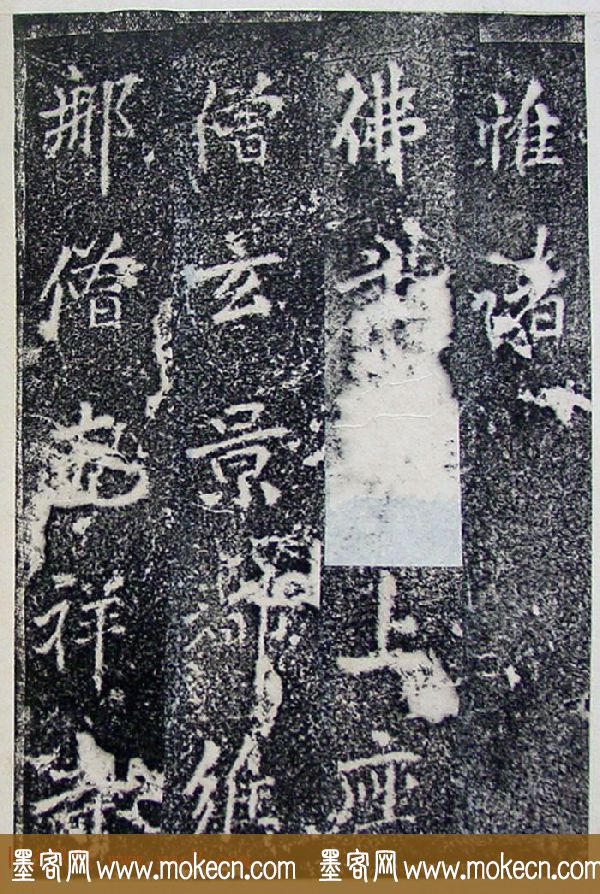 惟诸
佛
上座
僧玄景
维
那僧
祥
墨客网 www.mokecn.com 墨客网 www.mokecn.com